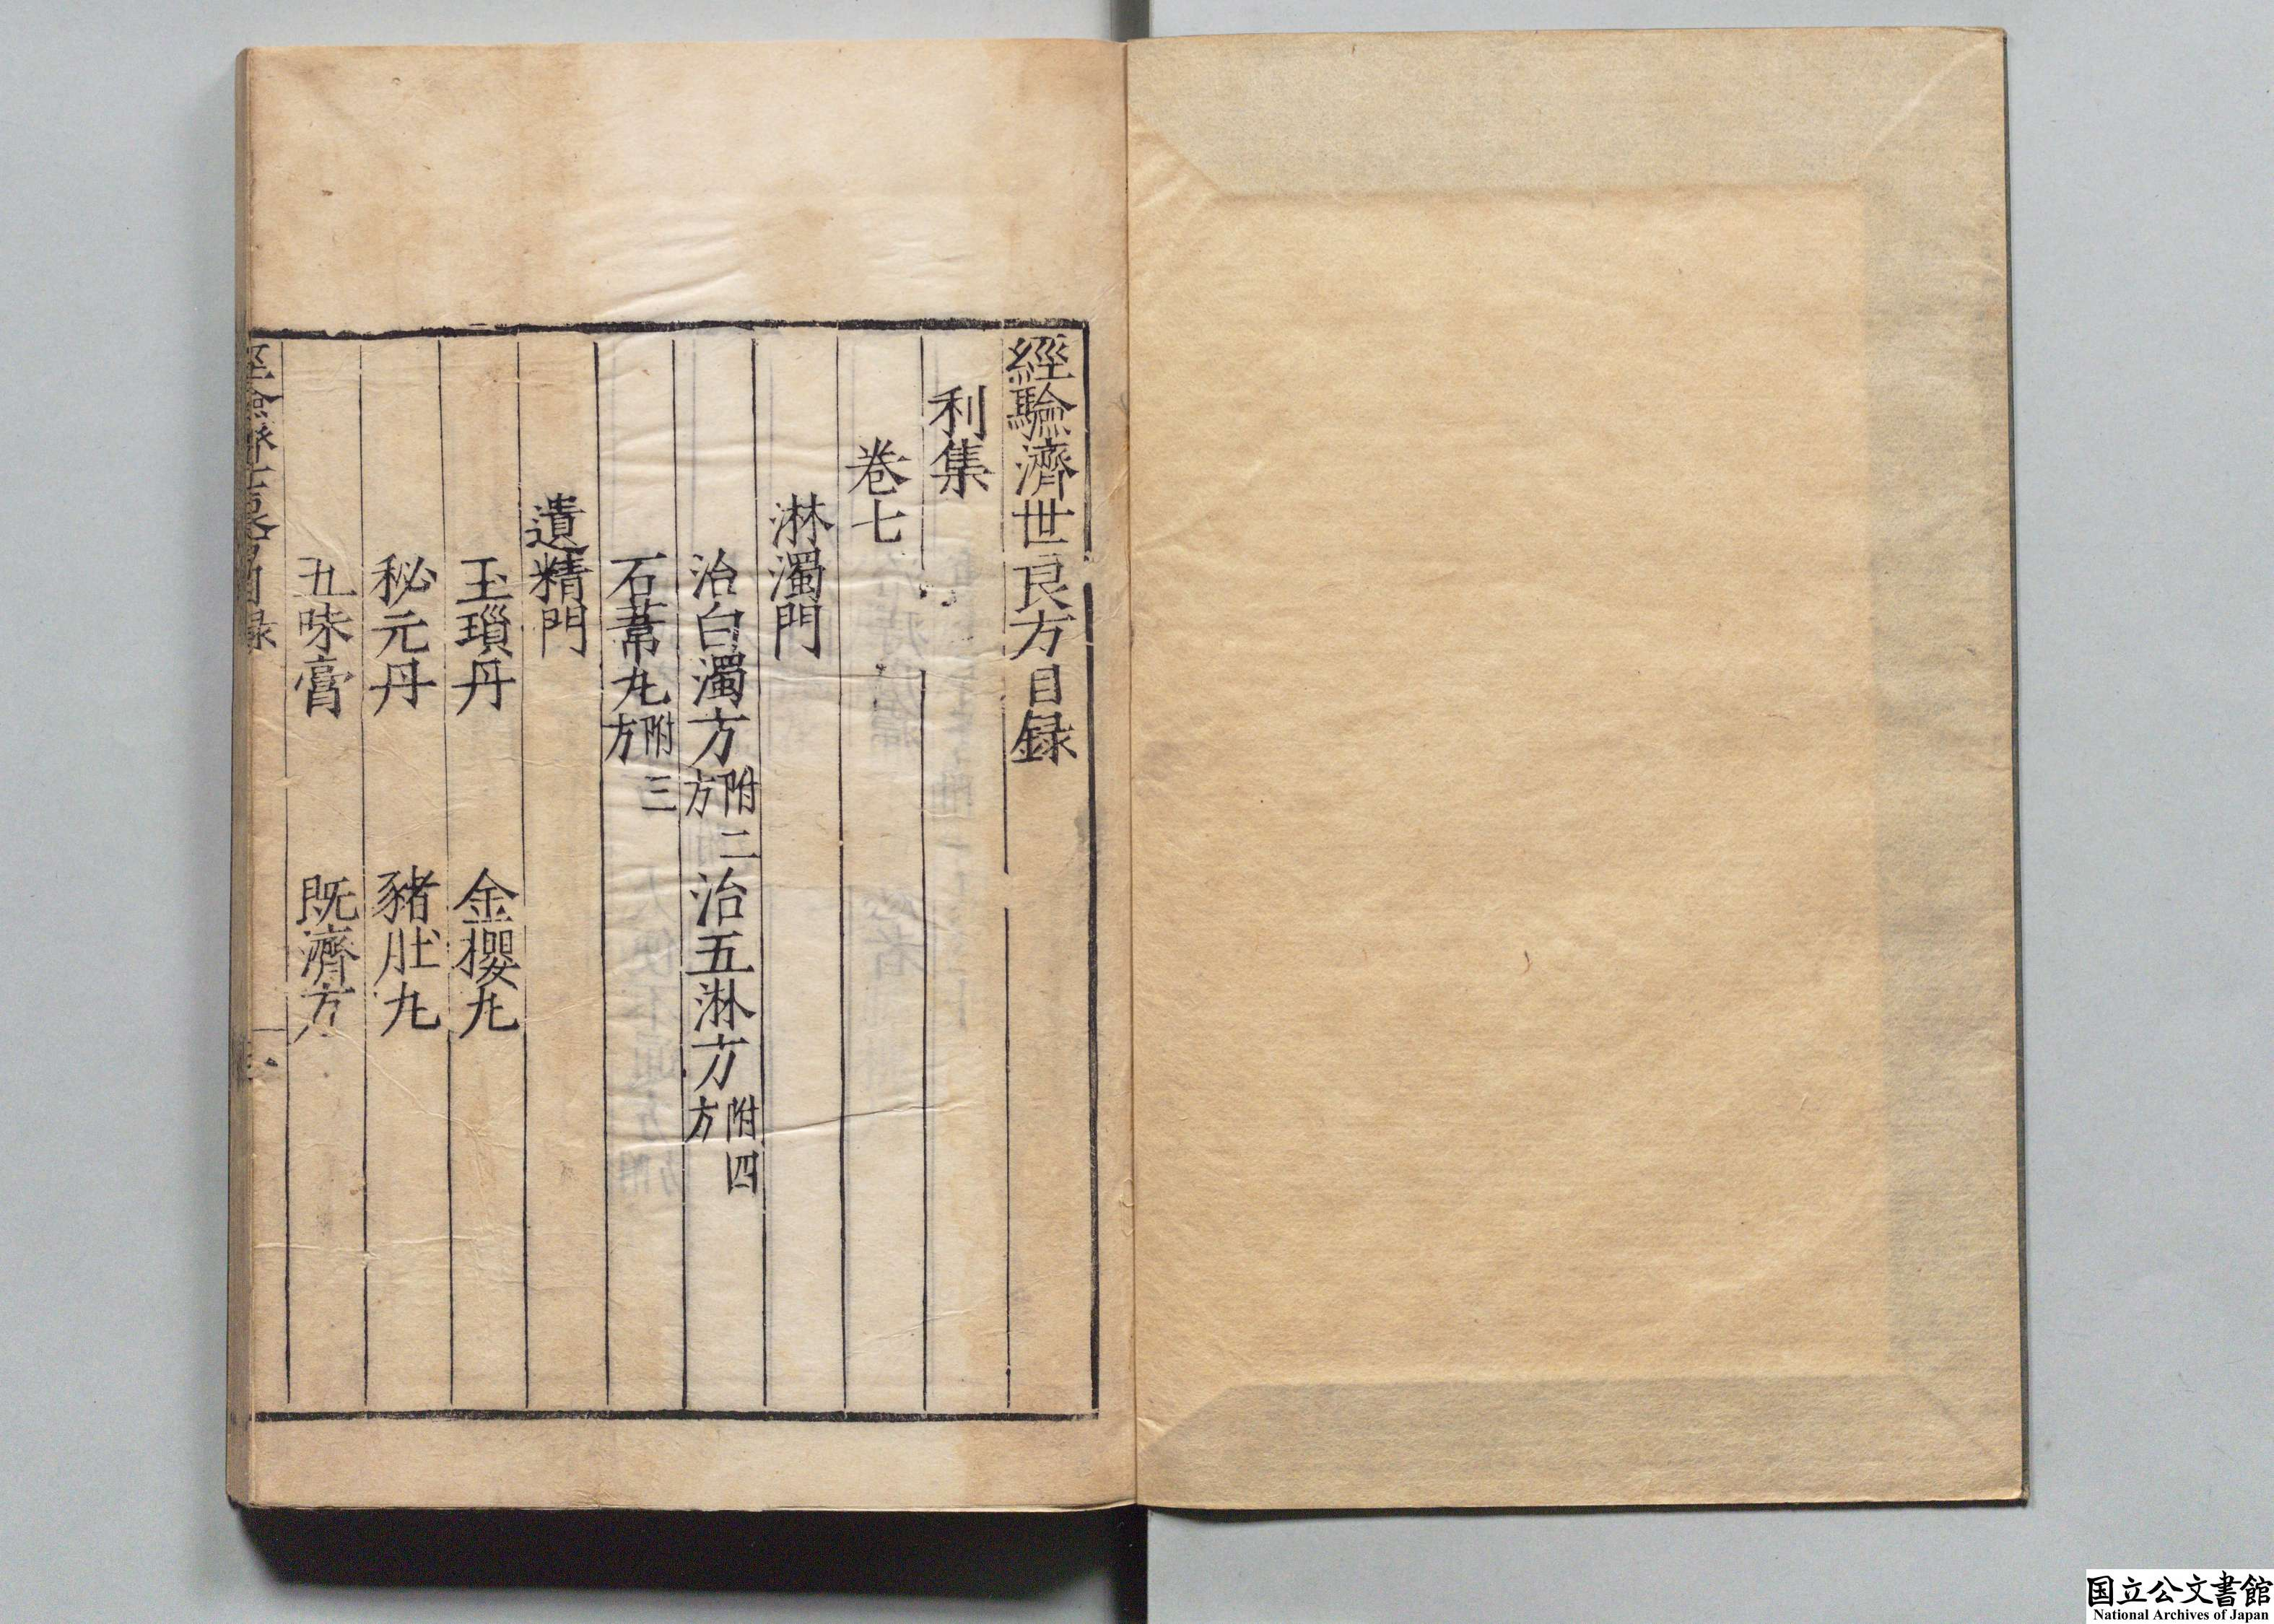 經驗濟世良方目録
利集
卷七
淋濁門
治白濁方附二方 治五淋方附四方
石葦丸附三方
遺精門
玉瑣丹 金櫻丸
秘元丹 豬肚丸
五味膏 既濟方
国立公文書館
National Archives of Japan